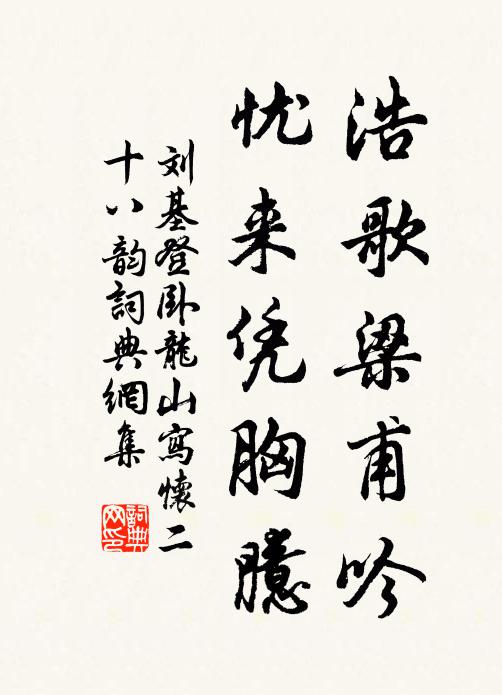 浩歌梁甫吟
忧来凭胸臆
刘基登卧龍山寫懷二
十八韵詞典網集
詞典
网印